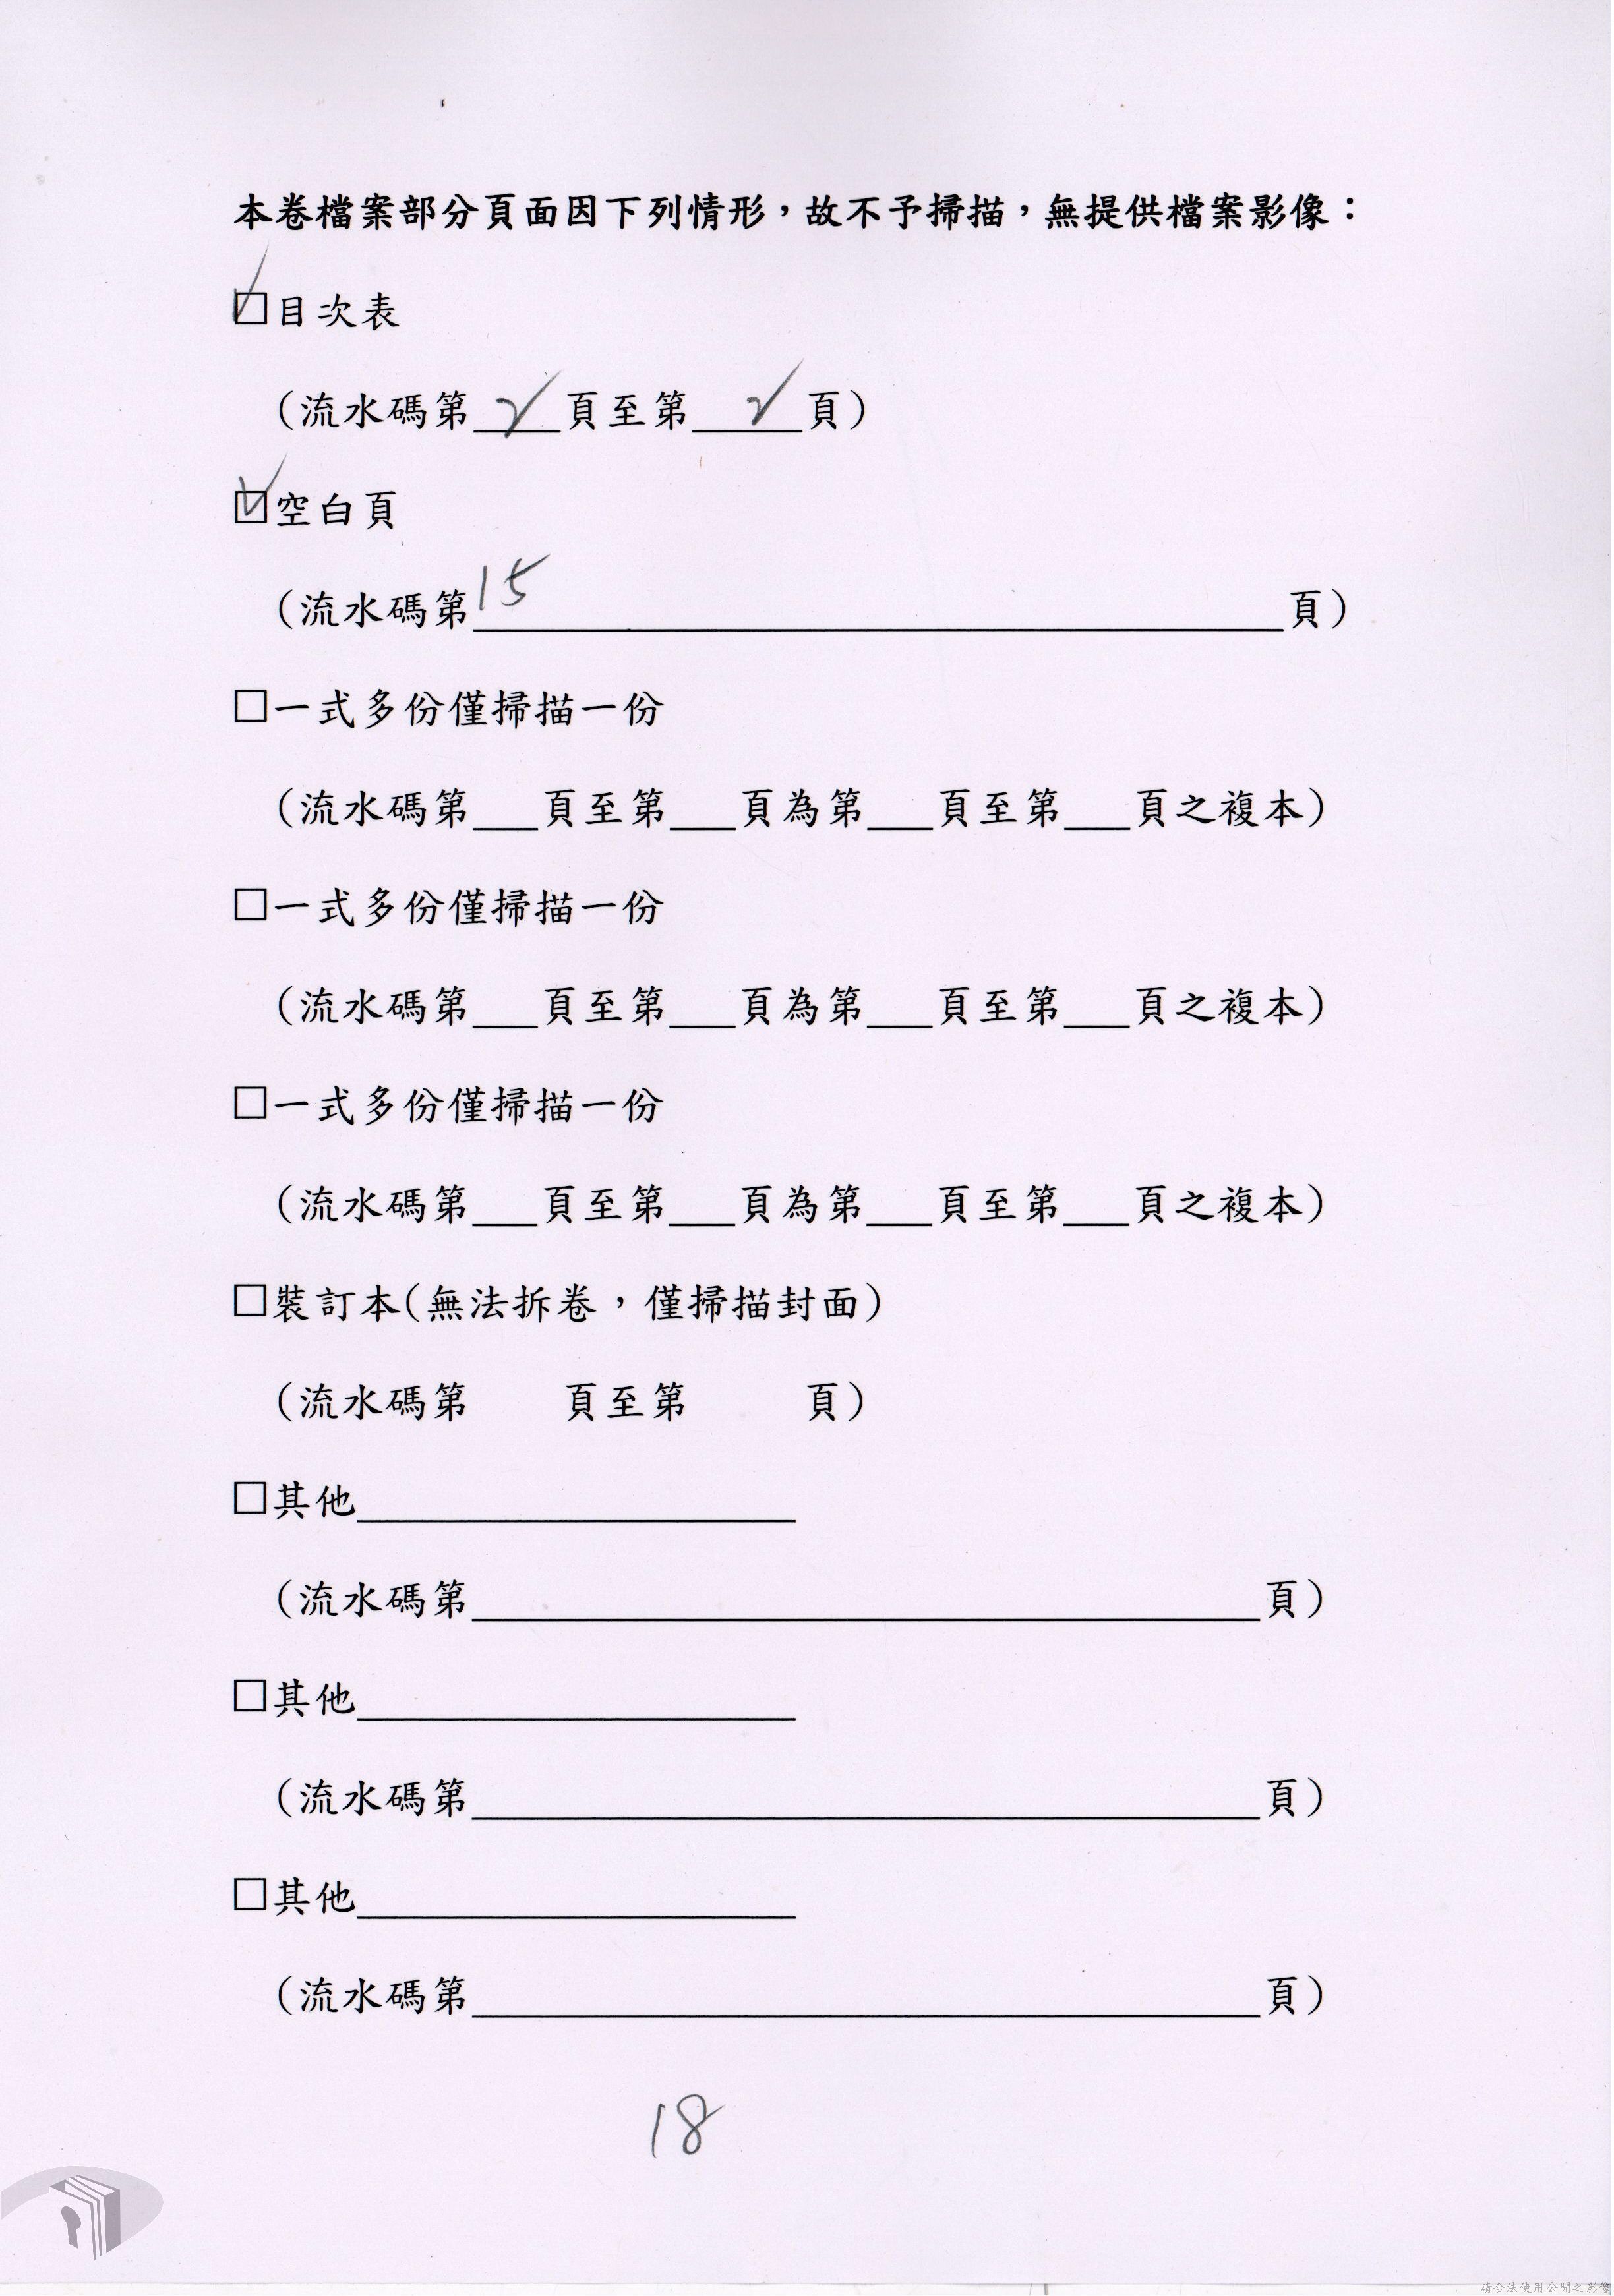 本卷檔案部分頁面因下列情形，故不予掃描，無提供檔案影像：
☑目次表
（流水碼第 2 頁至第 2 頁）
☑空白頁
（流水碼第15____頁）
□一式多份僅掃描一份
（流水碼第___頁至第___頁為第___頁至第___頁之複本）
□一式多份僅掃描一份
（流水碼第___頁至第___頁為第___頁至第___頁之複本）
□一式多份僅掃描一份
（流水碼第___頁至第___頁為第___頁至第___頁之複本）
□裝訂本(無法拆卷，僅掃描封面)
（流水碼第 頁至第 頁）
□其他____
（流水碼第____頁）
□其他____
（流水碼第____頁）
□其他____
（流水碼第____頁）
18
請合法使用公開之影像